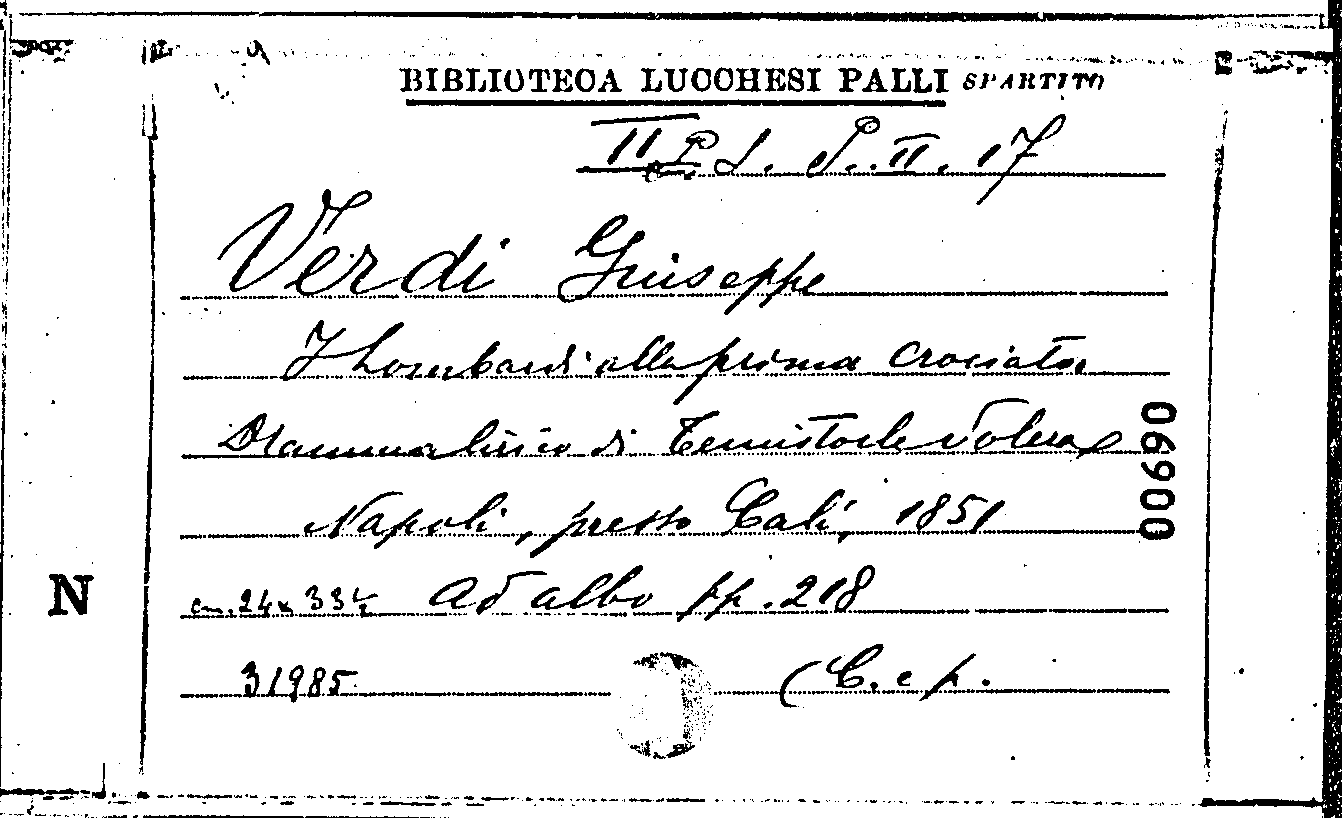 BIBLIOTECA LUCCHESI PALLI SPARTITO
II P. S. P. II. 17
Verdi Giuseppe
I Lombardi alla prima Crociata
Dramma lirico di Temistocle Solera
Napoli, presso Calì, 1851
00690
N
cm. 24 x 33½ ad albo pp. 218
31985
(C. e p.